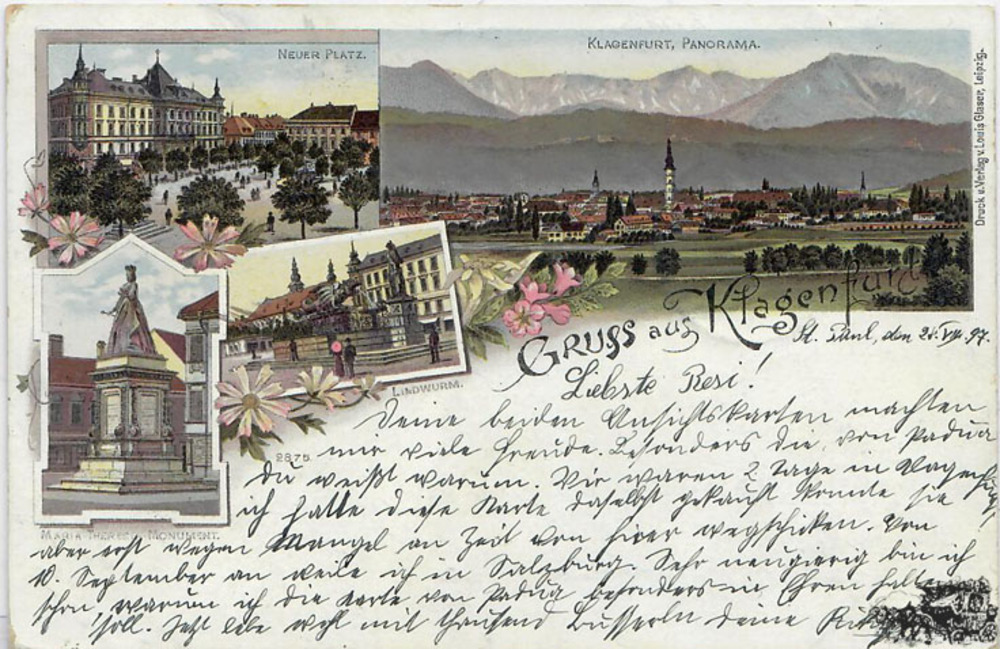 NEUER PLATZ.
KLAGENFURT, PANORAMA.
Druck u. Verlag v. Louis Glaser, Leipzig.
LINDWURM.
2875.
MARIA THERESIA-MONUMENT.
GRUSS aus Klagenfurt
St. Paul, den 28. VIII. 97.
Liebste Resi!
Deine beiden Ansichtskarten machten
mir viele Freude. Besonders die von Padua
du weißt warum. Wir waren 2 Tage in
ich hatte diese Karte daselbst gekauft konnte sie
aber erst wegen Mangel an Zeit von hier wegschicken. Von
10. September an weile ich in Salzburg. Sehr neugierig bin ich
schon, warum ich die Karte von Padua besonders in Ehren halten
soll. Jetzt lebe wohl mit tausend Busserln deine